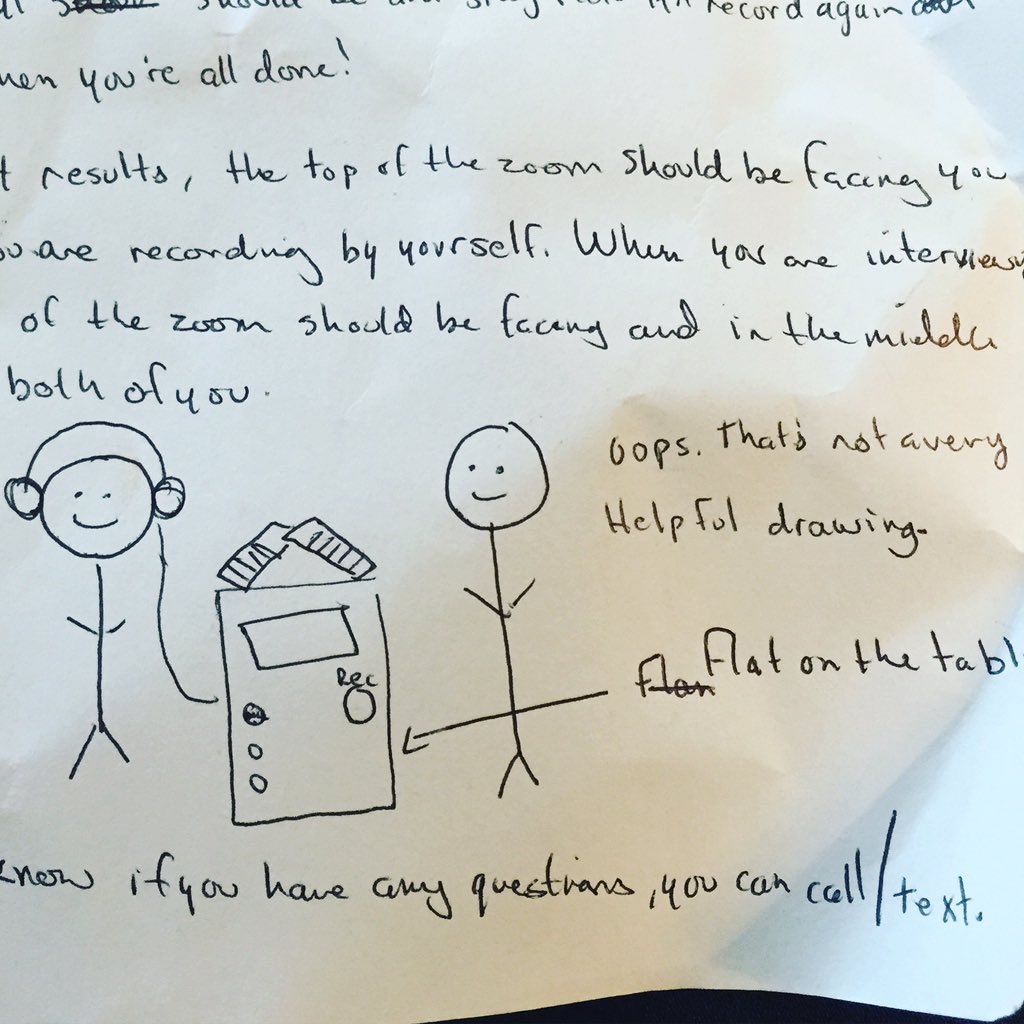 should be and stay record again
when you're all done!
t results, the top of the zoom should be facing you
ou are recording by yourself. When you are interview
of the zoom should be facing and in the middle
both of you.
Oops. That's not a very
Helpful drawing.
Flat on the tabl
Rec
know if you have any questions, you can call/text.